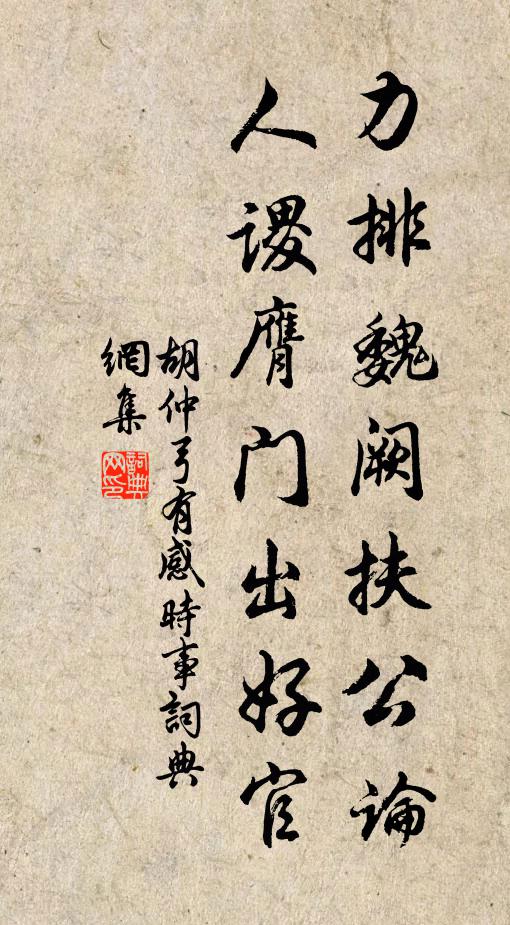 力排魏阙扶公論
人谡膺门出好官
胡仲弓有感時事詞典
網集
詞典
网印